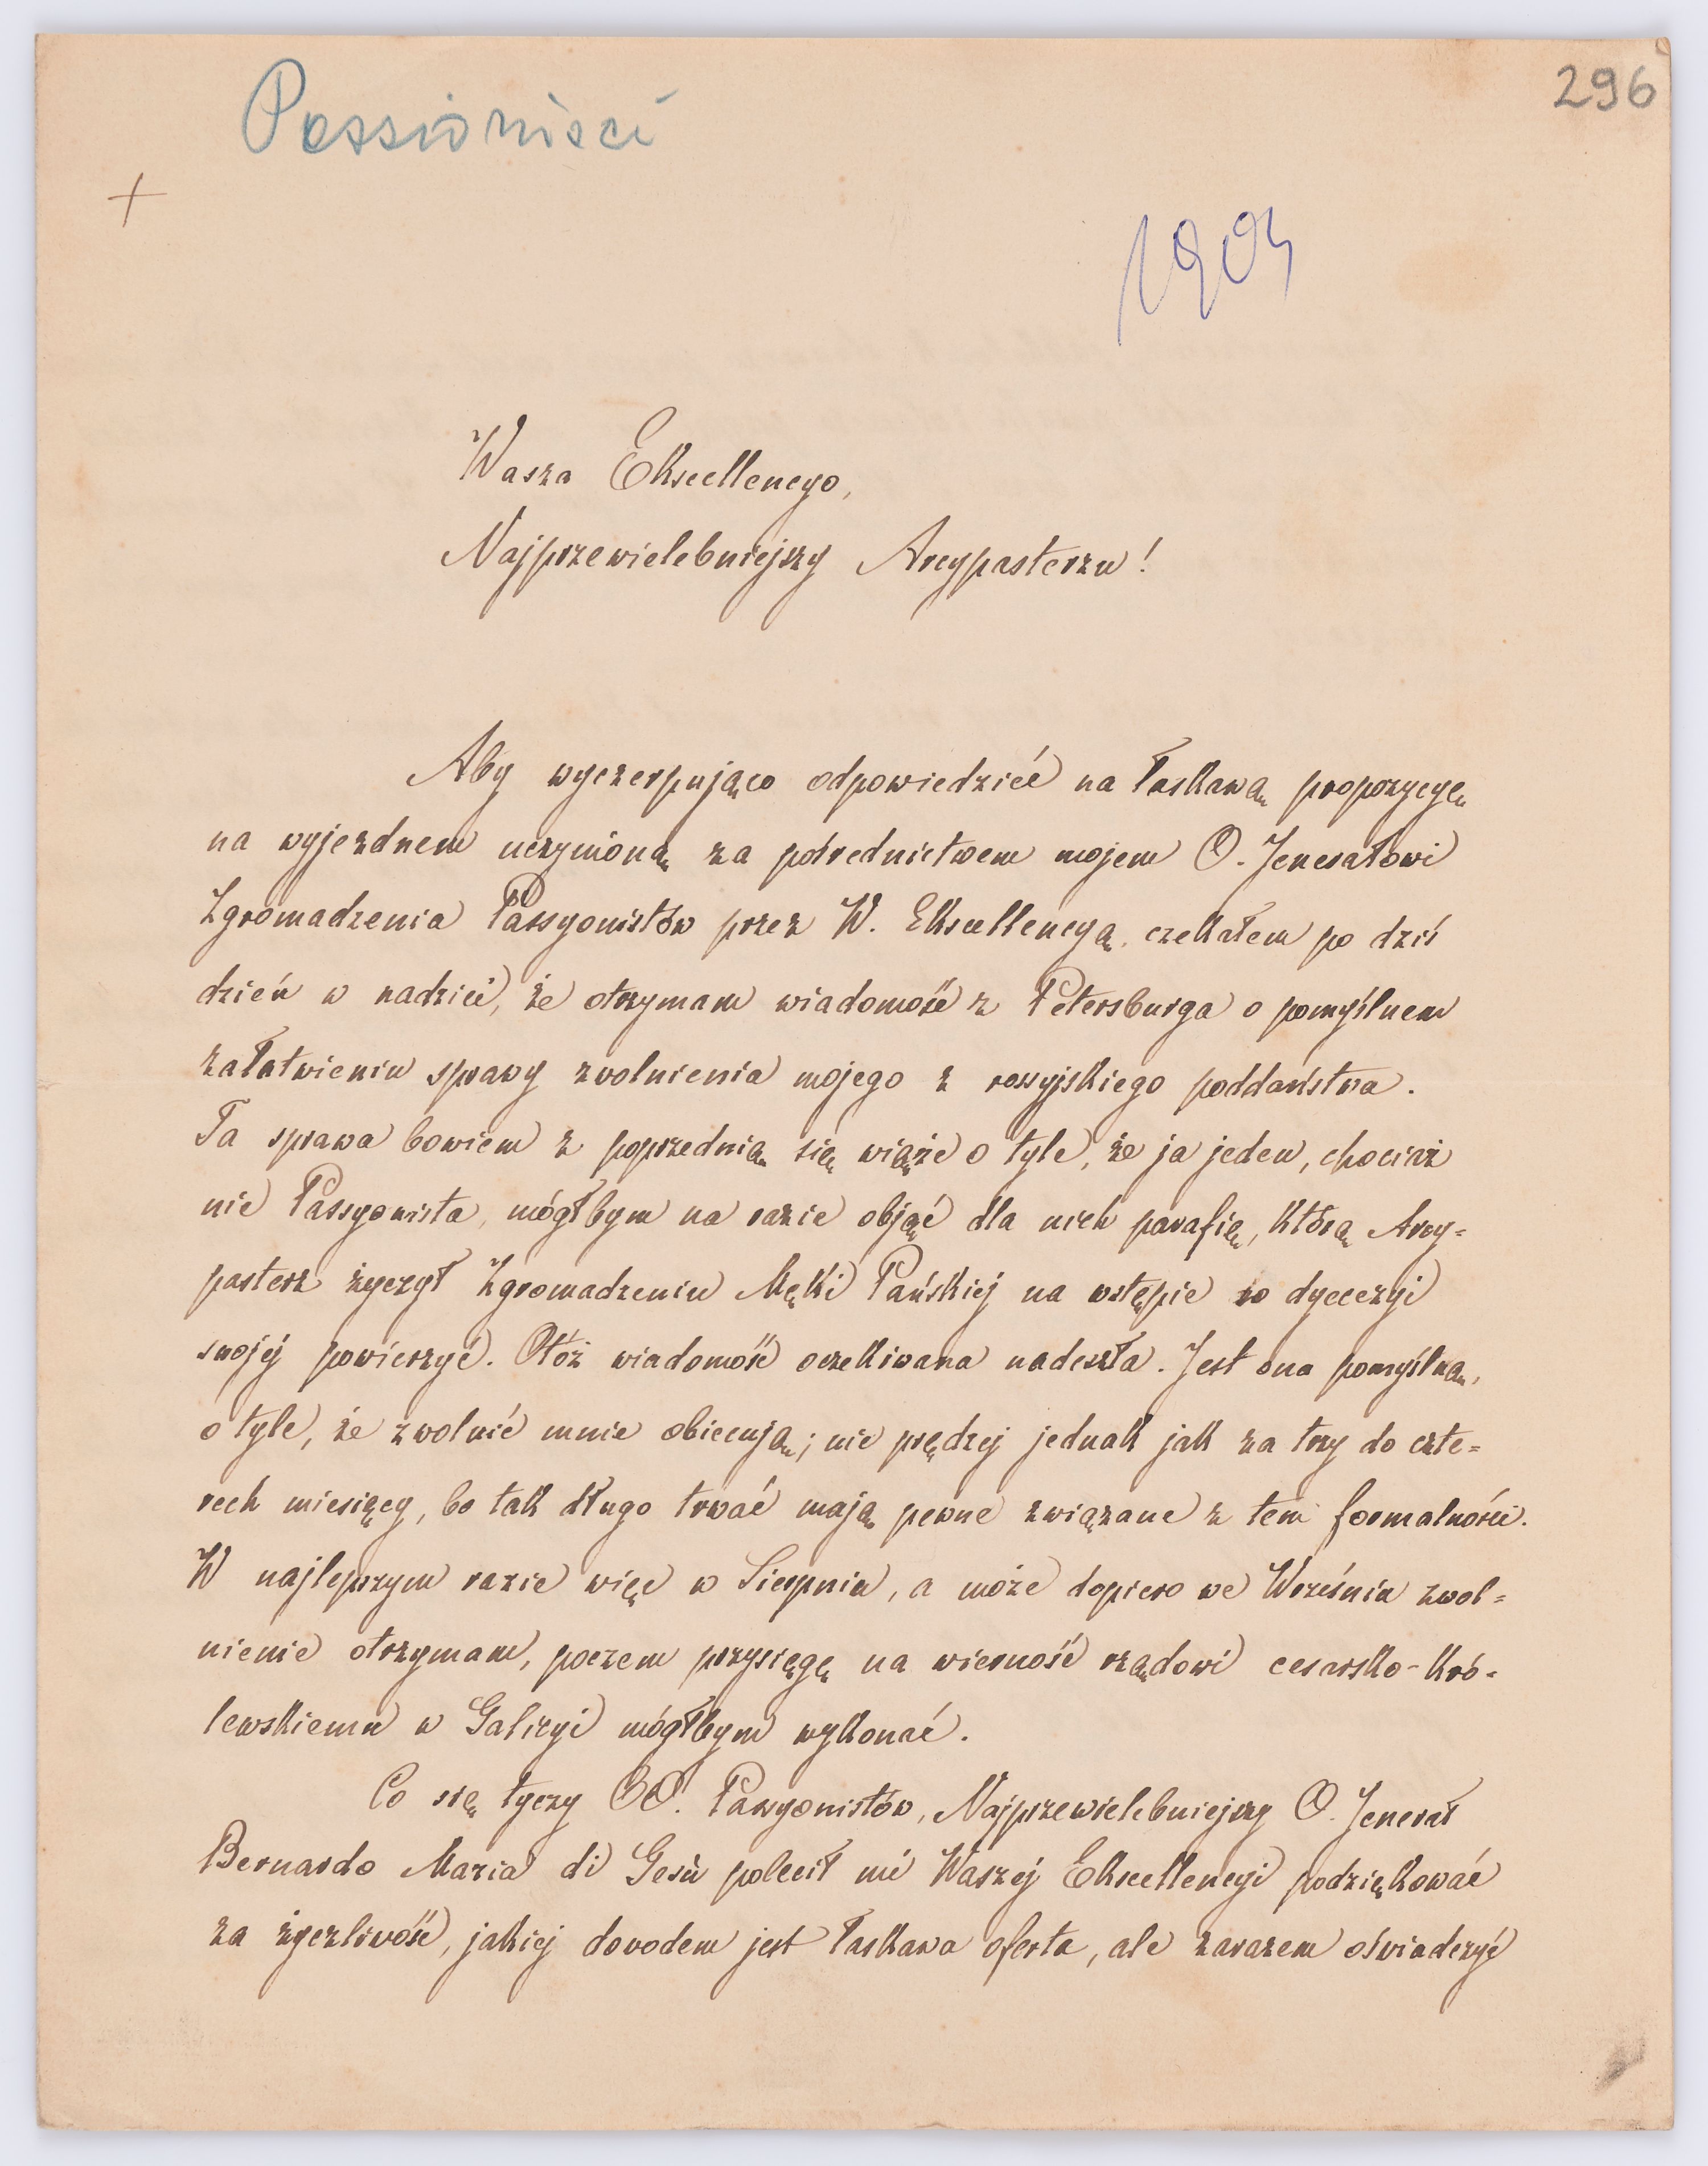 Passioniści
296
+
1904
Wasza Ekscellencyo,
Najprzewielebniejszy Arcypasterzu!
Aby wyczerpująco odpowiedzieć na łaskawą propozycyę
na wyjezdnem uczynioną za pośrednictwem mojem O. Jenerałowi
Zgromadzenia Passyonistów przez W. Ekscellencyą, czekałem po dziś
dzień w nadziei, że otrzymam wiadomość z Petersburga o pomyślnem
załatwieniu sprawy zwolnienia mojego z rossyjskiego poddaństwa.
Ta sprawa bowiem z poprzednią się wiąże o tyle, że ja jeden, chociaż
nie Passyonista, mógłbym na razie objąć dla nich parafię, którą Arcy=
pasterz życzył Zgromadzeniu Męki Pańskiej na wstępie do dyecezyi
swojéj powierzyć. Otóż wiadomość oczekiwana nadeszła. Jest ona pomyślną,
o tyle, że zwolnić mnie obiecują; nie prędzej jednak jak za trzy do czte=
rech miesięcy, bo tak długo trwać mają pewne związane z tem formalności.
W najlepszym razie więc w Sierpniu, a może dopiero we Wrześniu zwol=
nienie otrzymam, poczem przysięgę na wierność rządowi cesarsko-kró=
lewskiemu w Galicyi mógłbym wykonać.
Co się tyczy OO. Passyonistów, Najprzewielebniejszy O. Jenerał
Bernardo Maria di Gesù polecił mi Waszéj Ekscellencyi podziękować
za życzliwość, jakiej dowodem jest łaskawa oferta, ale zarazem oświadczyć